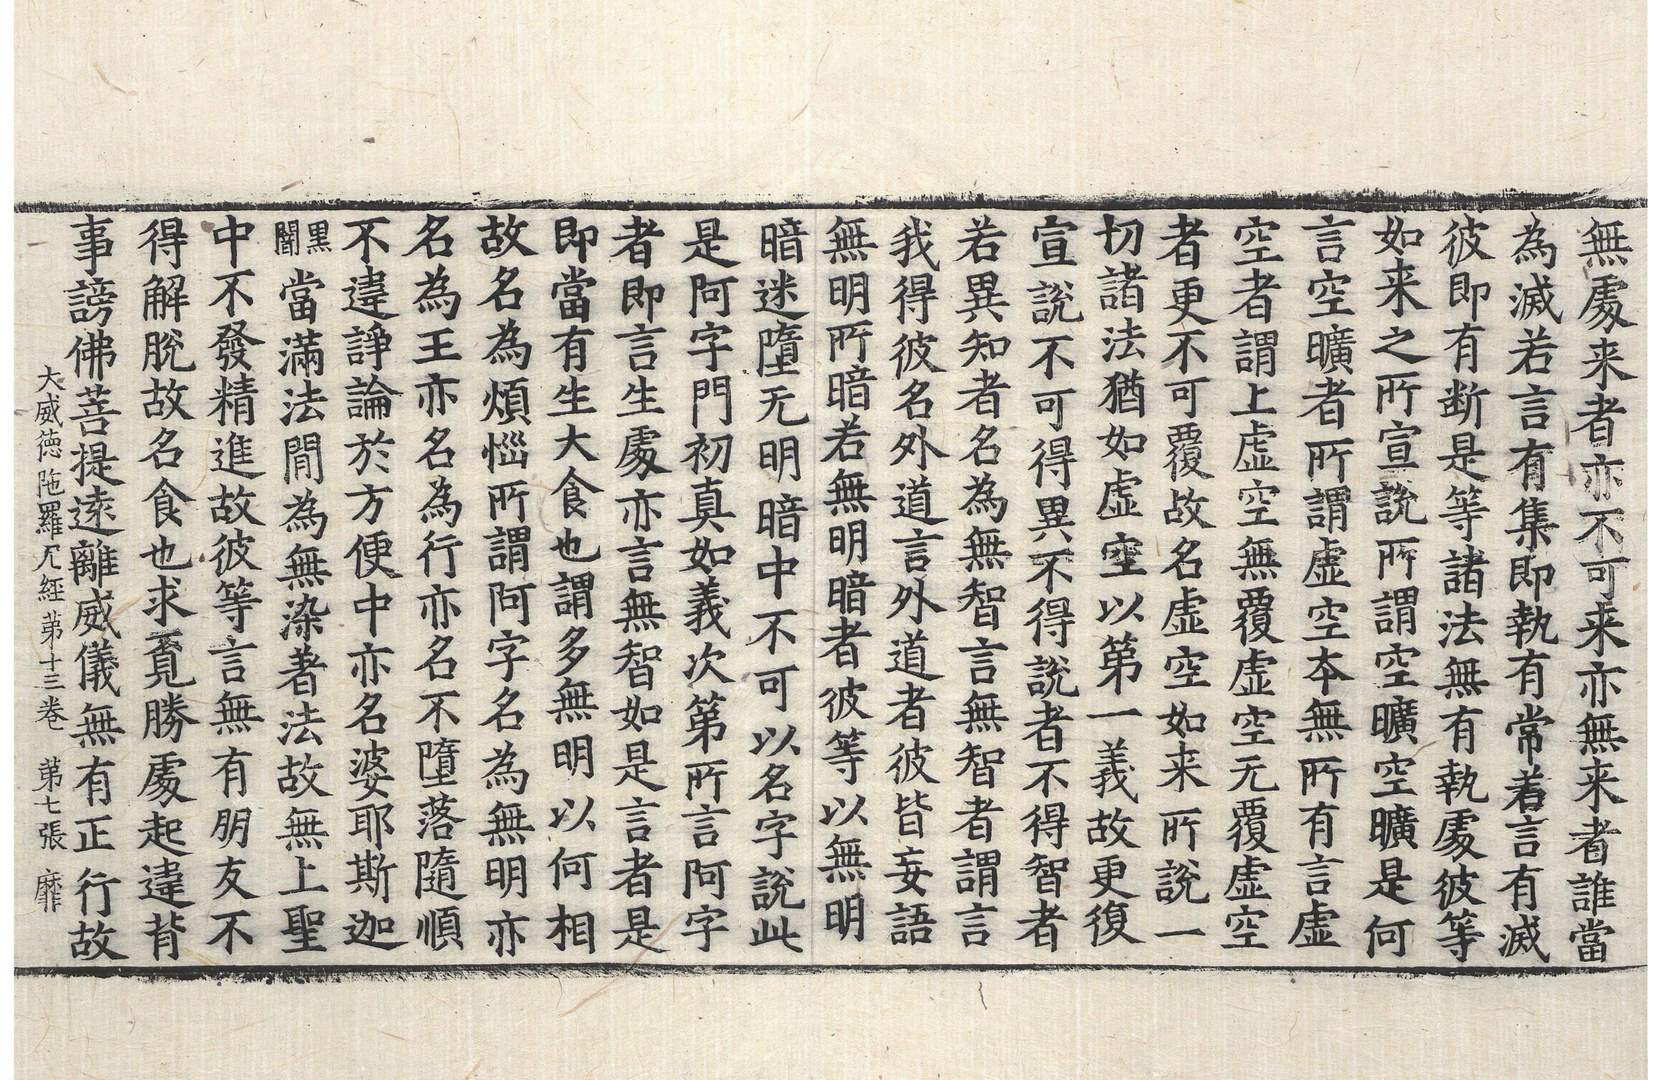 無處来者亦不可来亦無来者誰當
為滅若言有集即執有常若言有滅
彼即有断是等諸法無有執處彼等
如来之所宣說所謂空曠空曠是何
言空曠者所謂虛空本無所有言虛
空者謂上虛空無覆虛空无覆虛空
者更不可覆故名虛空如来所說一
切諸法猶如虛空以第一義故更復
宣說不可得異不得說者不得智者
若異知者名為無智言無智者謂言
我得彼名外道言外道者彼皆妄語
無明所暗若無明暗者彼等以無明
暗迷墮无明暗中不可以名字說此
是阿字門初真如義次第所言阿字
者即言生處亦言無智如是言者是
即當有生大食也謂多無明以何相
故名為煩惱所謂阿字名為無明亦
名為王亦名為行亦名不墮落隨順
不違諍論於方便中亦名婆耶斯迦
黒闇當滿法閒為無染著法故無上聖
中不發精進故彼等言無有朋友不
得解脫故名食也求覔勝處起違背
事謗佛菩提遠離威儀無有正行故
大威德陁羅尼經第十三卷 第七張 靡